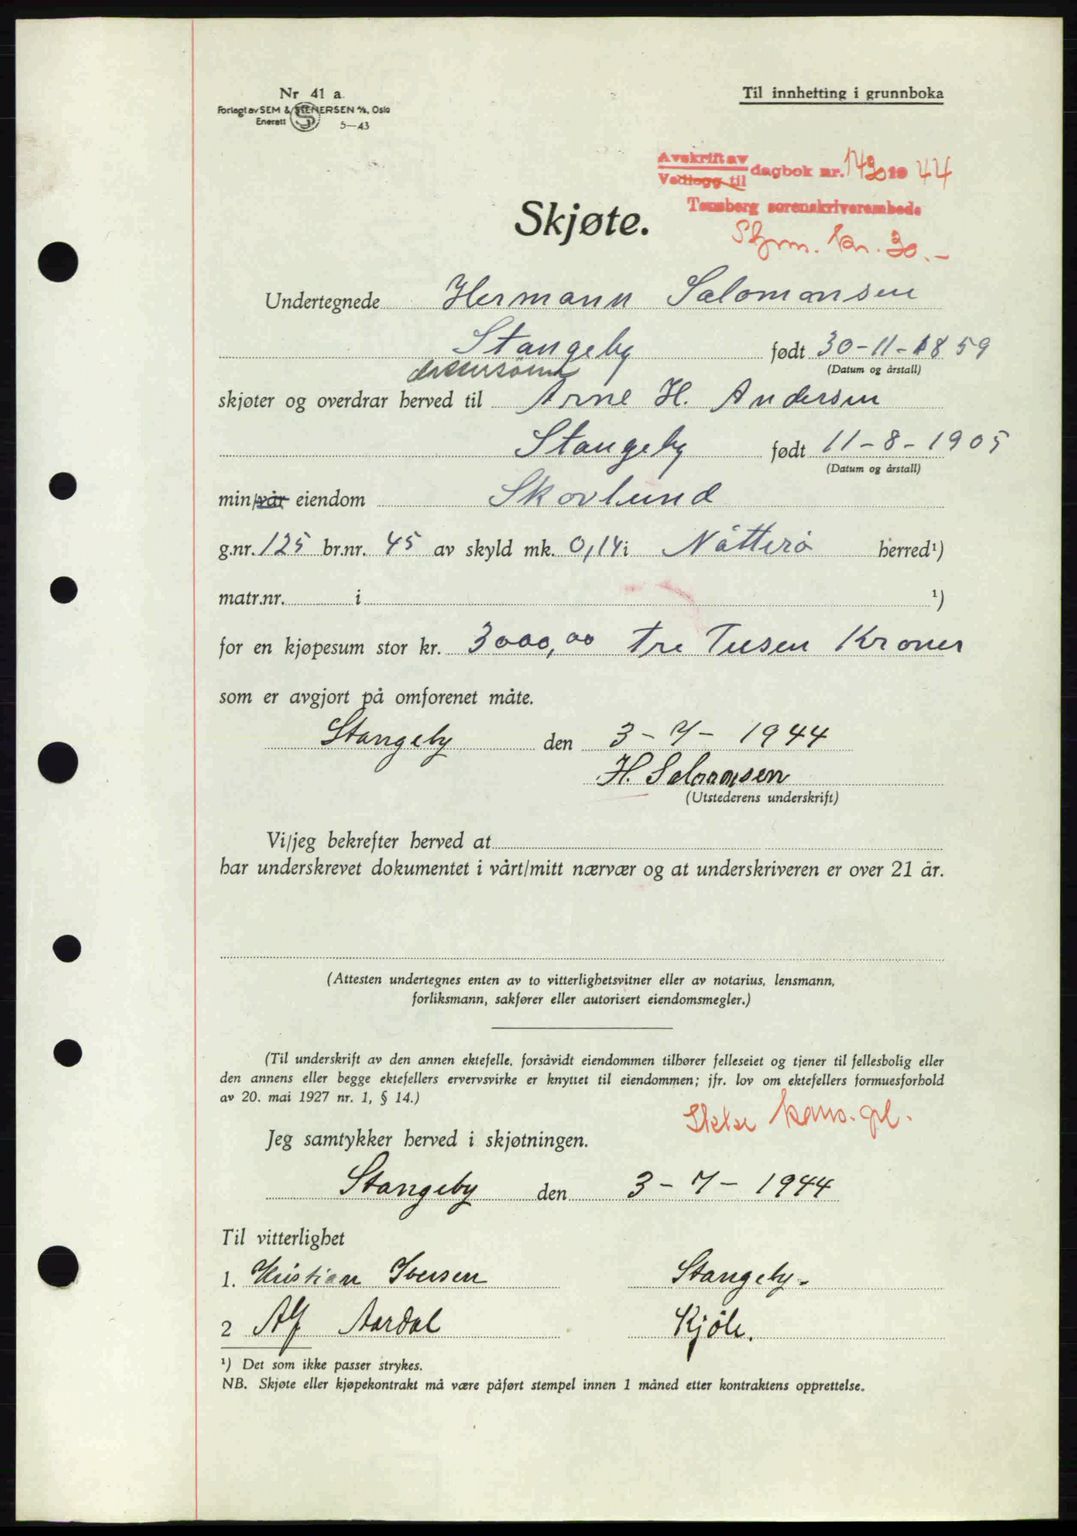 Nr 41 a.
Forlagt av SEM & STENERSEN A/S, Oslo
Enerett 5—43
Til innhefting i grunnboka
Avskrift av
Vedlegg til dagbok nr. 1430 19 44
Tønsberg sorenskriverembede
Skjøte.
Stpm. kr. 30.-
Undertegnede Hermann Salomonsen
Stangeby født 30-11-1859
(Datum og årstall)
skjøter og overdrar herved til Arne H. Andersen
Stangeby født 11-8-1905
(Datum og årstall)
min/vår eiendom Skovlund
g.nr. 125 br.nr. 45 av skyld mk. 0,14 i Nøtterø herred¹)
matr.nr. i ¹)
for en kjøpesum stor kr. 3000,00 Tre Tusen Kroner
som er avgjort på omforenet måte.
Stangeby den 3-7-1944
H. Salomonsen
(Utstederens underskrift)
Vi/jeg bekrefter herved at
har underskrevet dokumentet i vårt/mitt nærvær og at underskriveren er over 21 år.
(Attesten undertegnes enten av to vitterlighetsvitner eller av notarius, lensmann,
forliksmann, sakfører eller autorisert eiendomsmegler.)
(Til underskrift av den annen ektefelle, forsåvidt eiendommen tilhører felleseiet og tjener til fellesbolig eller
den annens eller begge ektefellers ervervsvirke er knyttet til eiendommen; jfr. lov om ektefellers formuesforhold
av 20. mai 1927 nr. 1, § 14.)
Ikke kons.pl.
Jeg samtykker herved i skjøtningen.
Stangeby den 3-7-1944
Til vitterlighet
1. Kristian Iversen Stangeby.
2 Alf Aardal Kjøle.
¹) Det som ikke passer strykes.
NB. Skjøte eller kjøpekontrakt må være påført stempel innen 1 måned etter kontraktens opprettelse.